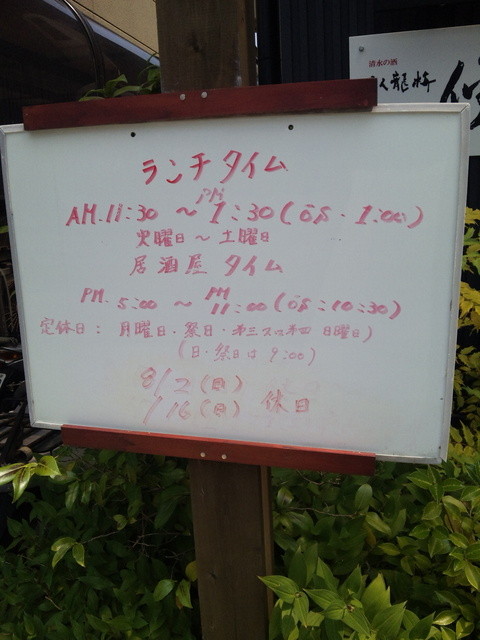 清水の酒
臥龍梅
ランチタイム
AM.11:30 ～ PM 1:30(OS・1:00)
火曜日～土曜日
居酒屋 タイム
PM. 5:00 ～ PM 11:00(OS:10:30)
定休日: 月曜日・祭日・第三 日曜日)
(日・祭日は 9:00)
8/2(日)
/16(日) 休日